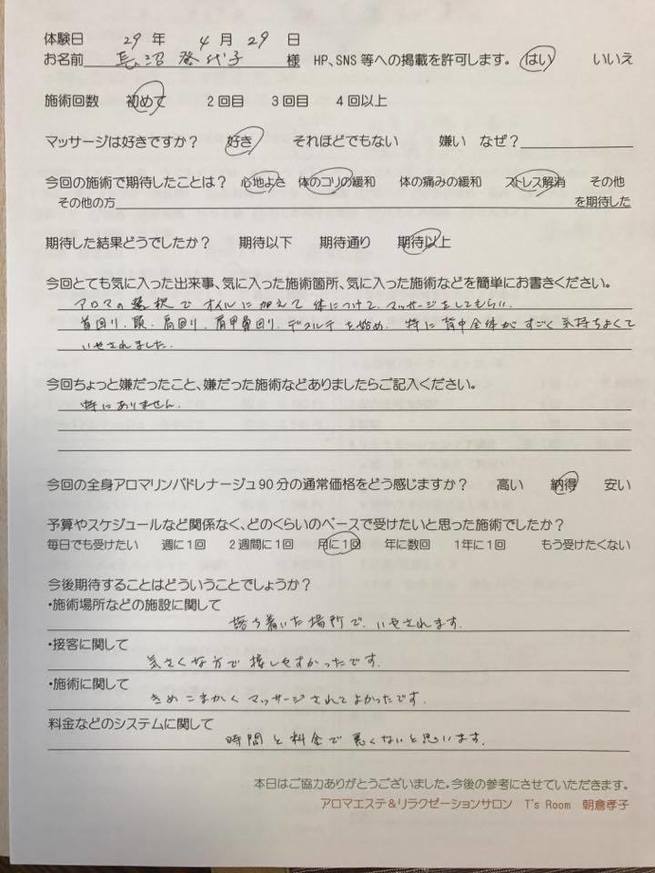 体験日 29 年 4 月 29 日
お名前 長沼 登代子 様 HP、SNS 等への掲載を許可します。 はい いいえ
施術回数 初めて 2回目 3回目 4回以上
マッサージは好きですか? 好き それほどでもない 嫌い なぜ?
今回の施術で期待したことは? 心地よさ 体のコリの緩和 体の痛みの緩和 ストレス解消 その他
その他の方 を期待した
期待した結果どうでしたか? 期待以下 期待通り 期待以上
今回とても気に入った出来事、気に入った施術箇所、気に入った施術などを簡単にお書きください。
アロマの選択で オイルに加えて 体につけて マッサージをしてもらい、
首回り、頭、肩回り、肩甲骨回り、デコルテを始め、特に背中全体がすごく気持ちよくて
いやされました。
今回ちょっと嫌だったこと、嫌だった施術などありましたらご記入ください。
特にありません。
今回の全身アロマリンパドレナージュ90分の通常価格をどう感じますか? 高い 納得 安い
予算やスケジュールなど関係なく、どのくらいのペースで受けたいと思った施術でしたか?
毎日でも受けたい 週に1回 2週間に1回 月に1回 年に数回 1年に1回 もう受けたくない
今後期待することはどういうことでしょうか?
・施術場所などの施設に関して
落ち着いた場所で、いやされます。
・接客に関して
気さくな方で 接しやすかったです。
・施術に関して
きめこまかく マッサージされてよかったです。
料金などのシステムに関して
時間と料金で 悪くないと思います。
本日はご協力ありがとうございました。今後の参考にさせていただきます。
アロマエステ&リラクゼーションサロン T's Room 朝倉孝子